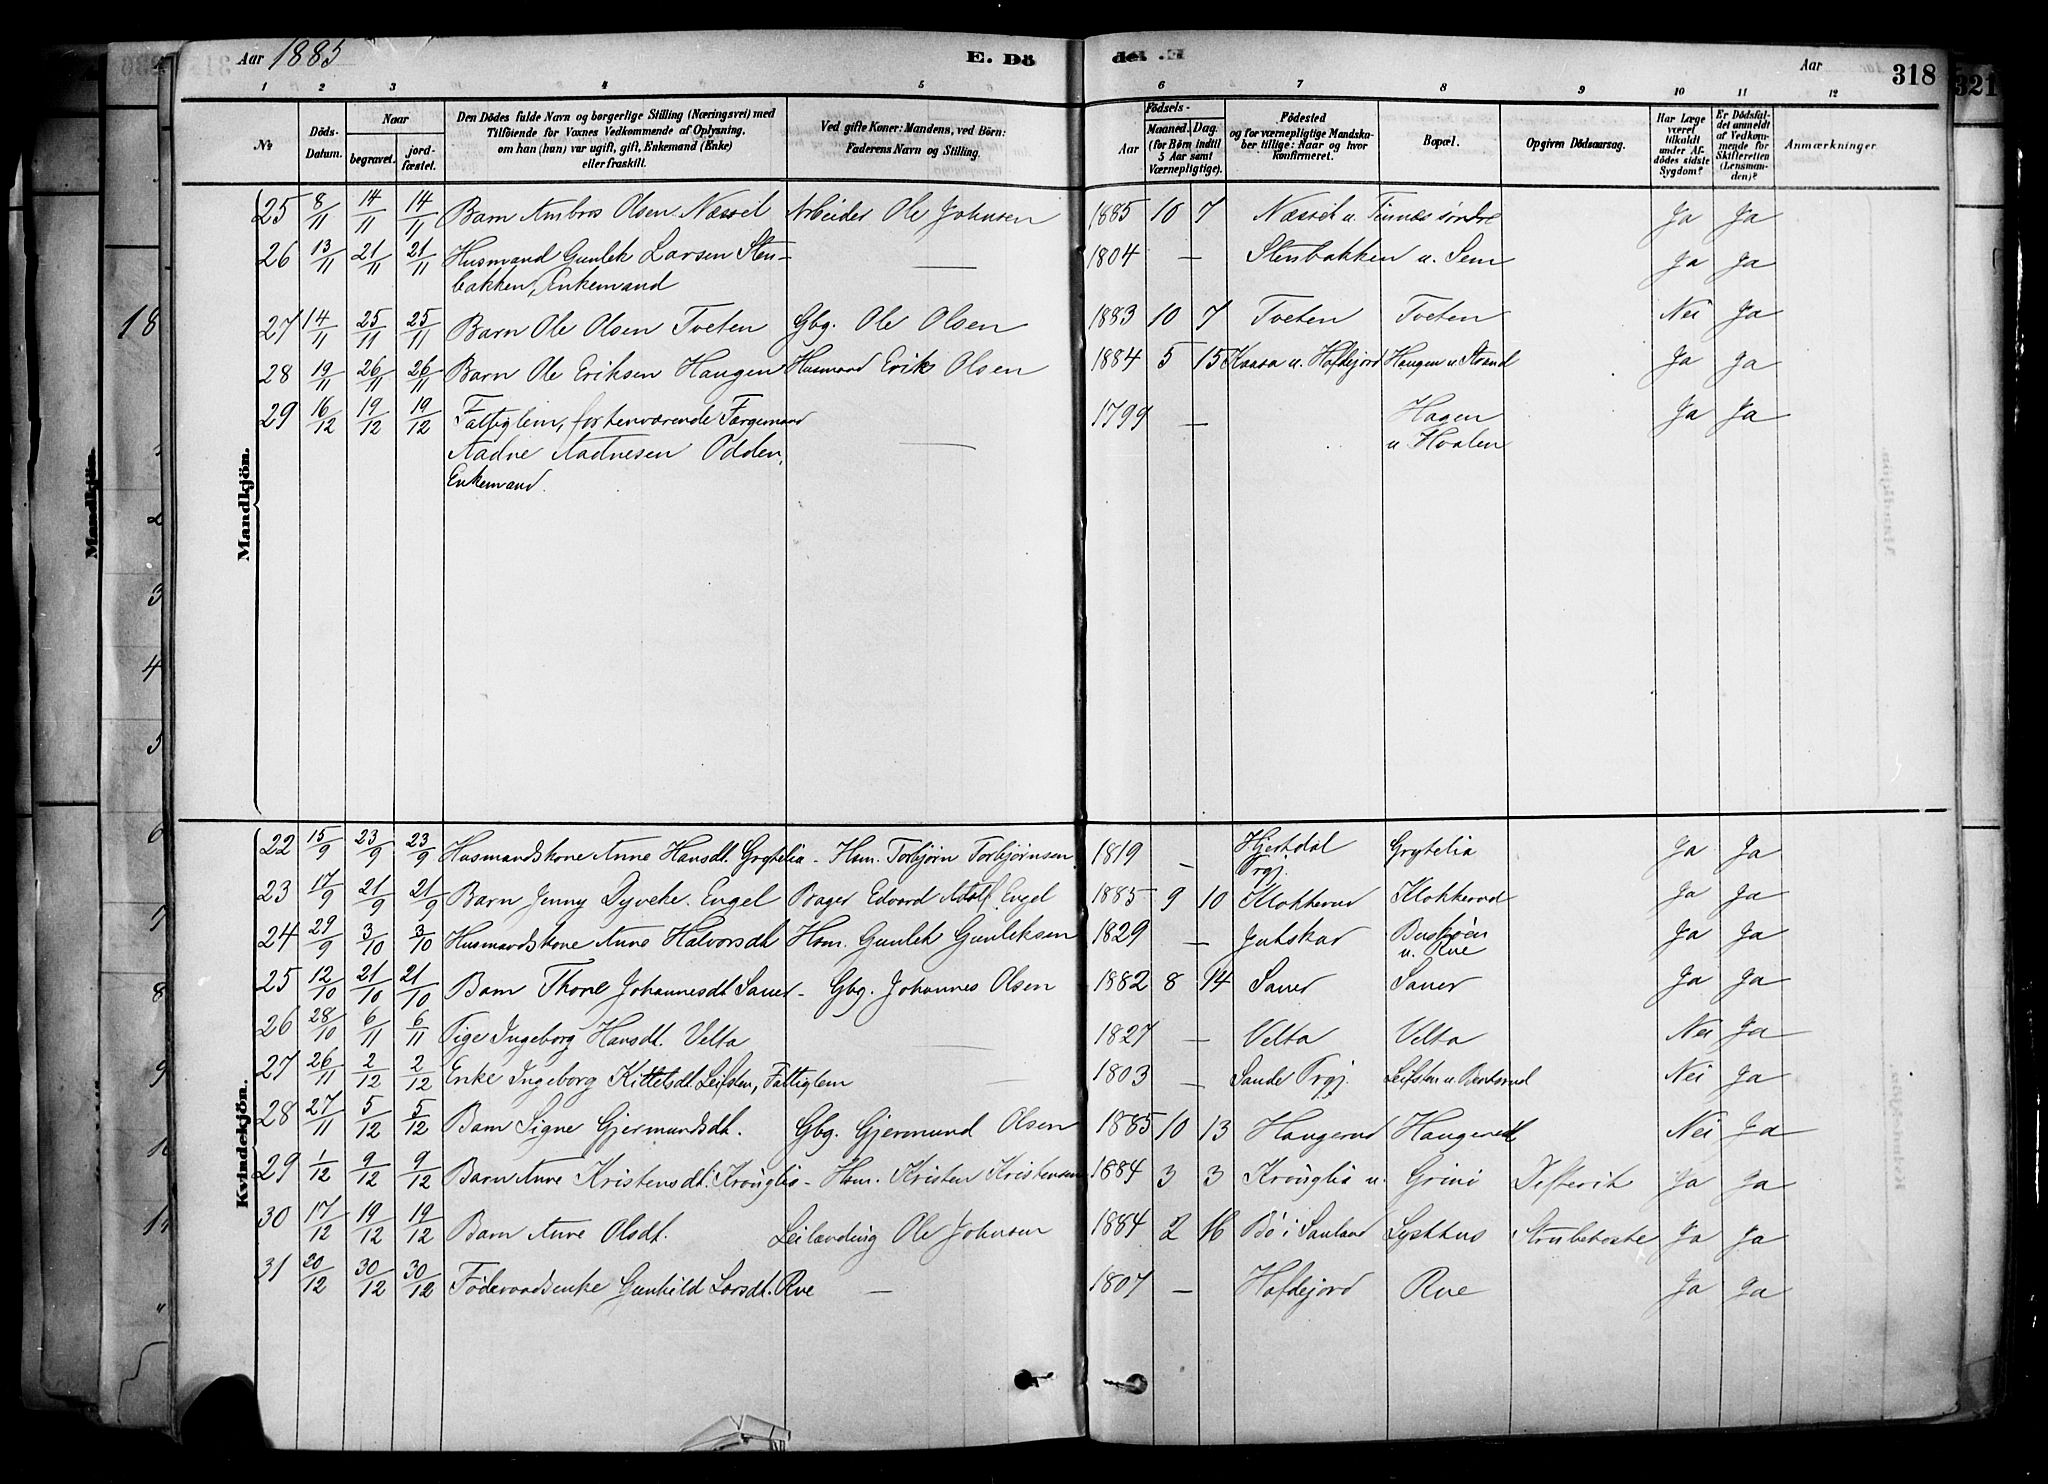 Aar 1885
E. Dö
det .E
Aar
318
321
1 2 3 4 5 6 7 8 9 10 11 12
No
Döds-Datum.
Naar
begravet.
jord-fæstet.
Den Dödes fulde Navn og borgerlige Stilling (Næringsvei) med
Tilföiende for Voxnes Vedkommende af Oplysning,
om han (hun) var ugift, gift, Enkemand (Enke)
eller fraskilt.
Ved gifte Koner: Mandens, ved Börn:
Faderens Navn og Stilling.
Födsels-
Aar
Maaned.
Dag.
(for Börn indtil
5 Aar samt
Værnepligtige).
Födested
og for værnepligtige Mandska-
ber tillige: Naar og hvor
konfirmeret.
Bopæl.
Opgiven Dödsaarsag.
Har Læge
været
tilkaldt
under Af-
dödes sidste
Sygdom?
Er Dödsfal-
det anmeldt
af Vedkom-
mende for
Skifteretten
(Lensman-
den)?
Anmærkninger
Mandkjön.
25 8/11 14/11 14/11 Barn Ambros Olsen Næsset Arbeider Ole Johnsen 1885 10 7 Næsset u. Tinnes søndre Ja Ja
26 13/11 21/11 21/11 Husmand Gunlek Larsen Sten- — 1804 — Stenbakken u. Sem Ja Ja
bakken, Enkemand
27 14/11 25/11 25/11 Barn Ole Olsen Tveten Gbg. Ole Olsen 1883 10 7 Tveten Tveten Nei Ja
28 19/11 26/11 26/11 Barn Ole Eriksen Haugen Husmand Erik Olsen 1884 5 15 Kaasa u. Hafdejord Haugen u. Strand Ja Ja
29 16/12 19/12 19/12 Fattiglem, forhenværende Færgemand — 1799 — Hagen Ja Ja
Aadne Aadnesen Odden, u Hvalen
Enkemand.
Kvindekjön.
22 15/9 23/9 23/9 Husmandskone Anne Hansdt. Grytelia - Hsm. Torbjørn Torbjørnsen 1819 — Hjertdal Prgj. Grytelia Ja Ja
23 17/9 21/9 21/9 Barn Jenny Dyveke Engel Bager Edvard Adolf Engel 1885 9 10 Klokkerud Klokkerud Ja Ja
24 29/9 3/10 3/10 Husmandskone Anne Halvorsdt. Hsm. Gunlek Gunleksen 1829 — Jutskar Buskøen u. Rue Ja Ja
25 12/10 21/10 21/10 Barn Thone Johannesdt. Sauer - Gbg. Johannes Olsen 1882 8 14 Sauer Sauer Ja Ja
26 28/10 6/11 6/11 Pige Ingeborg Hansdt. Velta — 1827 — Velta Velta Nei Ja
27 26/11 2/12 2/12 Enke Ingeborg Kittelsdt. Leifsten, Fattiglem — 1803 — Sande Prgj. Leifsten u. Rentsrud Nei Ja
28 27/11 5/12 5/12 Barn Signe Gjermundsdt. Gbg. Gjermund Olsen 1885 10 13 Haugerud Haugerud Nei Ja
29 1/12 9/12 9/12 Barn Anne Kristensdt. Krönglia - Hsm. Kristen Kristensen 1884 3 3 Krönglia u. Grini Difterit Ja Ja
30 17/12 19/12 19/12 Barn Anne Olsdt. Leilænding Ole Johnsen 1884 2 16 Bø i Sauland Lysthus Strubehoste Ja Ja
31 20/12 30/12 30/12 Føderaadsenke Gunhild Larsdt. Rue — 1807 — Hafdejord Rue Ja Ja
Mandkjön.
18
2
3
4
5
6
7
8
9
10
11